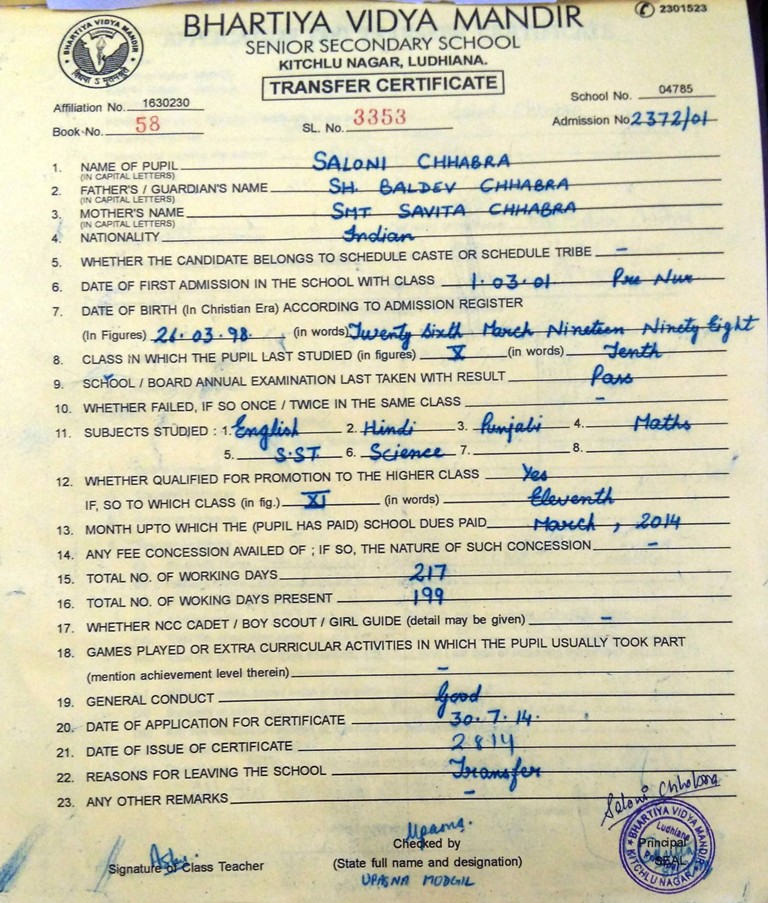 BHARTIYA VIDYA MANDIR
2301523
BHARTIYA VIDYA MANDIR
SENIOR SECONDARY SCHOOL
KITCHLU NAGAR, LUDHIANA.
TRANSFER CERTIFICATE
Affiliation No. 1630230 School No. 04785
Book No. 58 SL. No. 3353 Admission No 2372/01
1. NAME OF PUPIL SALONI CHHABRA
(IN CAPITAL LETTERS)
2. FATHER'S / GUARDIAN'S NAME SH. BALDEV CHHABRA
(IN CAPITAL LETTERS)
3. MOTHER'S NAME SMT SAVITA CHHABRA
(IN CAPITAL LETTERS)
4. NATIONALITY Indian
5. WHETHER THE CANDIDATE BELONGS TO SCHEDULE CASTE OR SCHEDULE TRIBE –
6. DATE OF FIRST ADMISSION IN THE SCHOOL WITH CLASS 1.03.01 Pre Nur
7. DATE OF BIRTH (In Christian Era) ACCORDING TO ADMISSION REGISTER
(In Figures) 26.03.98. (in words) Twenty Sixth March Nineteen Ninety Eight
8. CLASS IN WHICH THE PUPIL LAST STUDIED (in figures) X (in words) Tenth
9. SCHOOL / BOARD ANNUAL EXAMINATION LAST TAKEN WITH RESULT Pass
10. WHETHER FAILED, IF SO ONCE / TWICE IN THE SAME CLASS –
11. SUBJECTS STUDIED : 1. English 2. Hindi 3. Punjabi 4. Maths
5. S.ST 6. Science 7. 8.
12. WHETHER QUALIFIED FOR PROMOTION TO THE HIGHER CLASS Yes
IF, SO TO WHICH CLASS (in fig.) XI (in words) Eleventh
13. MONTH UPTO WHICH THE (PUPIL HAS PAID) SCHOOL DUES PAID March, 2014
14. ANY FEE CONCESSION AVAILED OF ; IF SO, THE NATURE OF SUCH CONCESSION –
15. TOTAL NO. OF WORKING DAYS 217
16. TOTAL NO. OF WOKING DAYS PRESENT 199
17. WHETHER NCC CADET / BOY SCOUT / GIRL GUIDE (detail may be given) –
18. GAMES PLAYED OR EXTRA CURRICULAR ACTIVITIES IN WHICH THE PUPIL USUALLY TOOK PART
(mention achievement level therein) –
19. GENERAL CONDUCT Good
20. DATE OF APPLICATION FOR CERTIFICATE 30.7.14.
21. DATE OF ISSUE OF CERTIFICATE 2 8 14
22. REASONS FOR LEAVING THE SCHOOL Transfer
23. ANY OTHER REMARKS –
Saloni Chhabra
BHARTIYA VIDYA MANDIR
Ludhiana
KITCHLU NAGAR
Principal
SEAL
Upasna.
Checked by
Signature of Class Teacher (State full name and designation)
UPASNA MODGIL